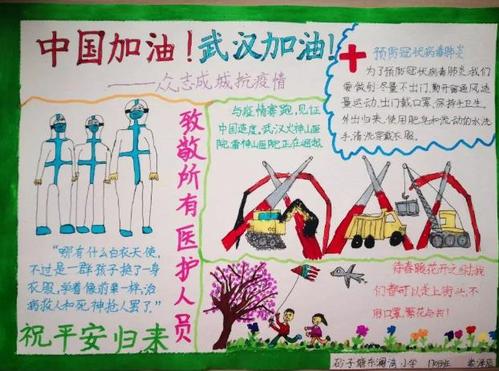 中国加油!武汉加油!
——众志成城抗疫情
致敬所有医护人员
“哪有什么白衣天使,
不过是一群孩子换了一身
衣服,学着像前辈一样,治
病救人和死神抢人罢了.”
祝平安归来
与疫情赛跑,见证
中国速度,武汉火神山医
院,雷神山医院正在崛起
预防冠状病毒肺炎
为了预防冠状病毒肺炎,我们
要做到:尽量不出门,勤开窗通风,适
量运动,出门戴口罩,保持卫生.
外出归来,使用肥皂和流动的水洗
手,清洗穿戴衣服.
待春暖花开之时,我
们都可以走上街头,不
用口罩,繁花与共!
砂子塘东澜湾小学